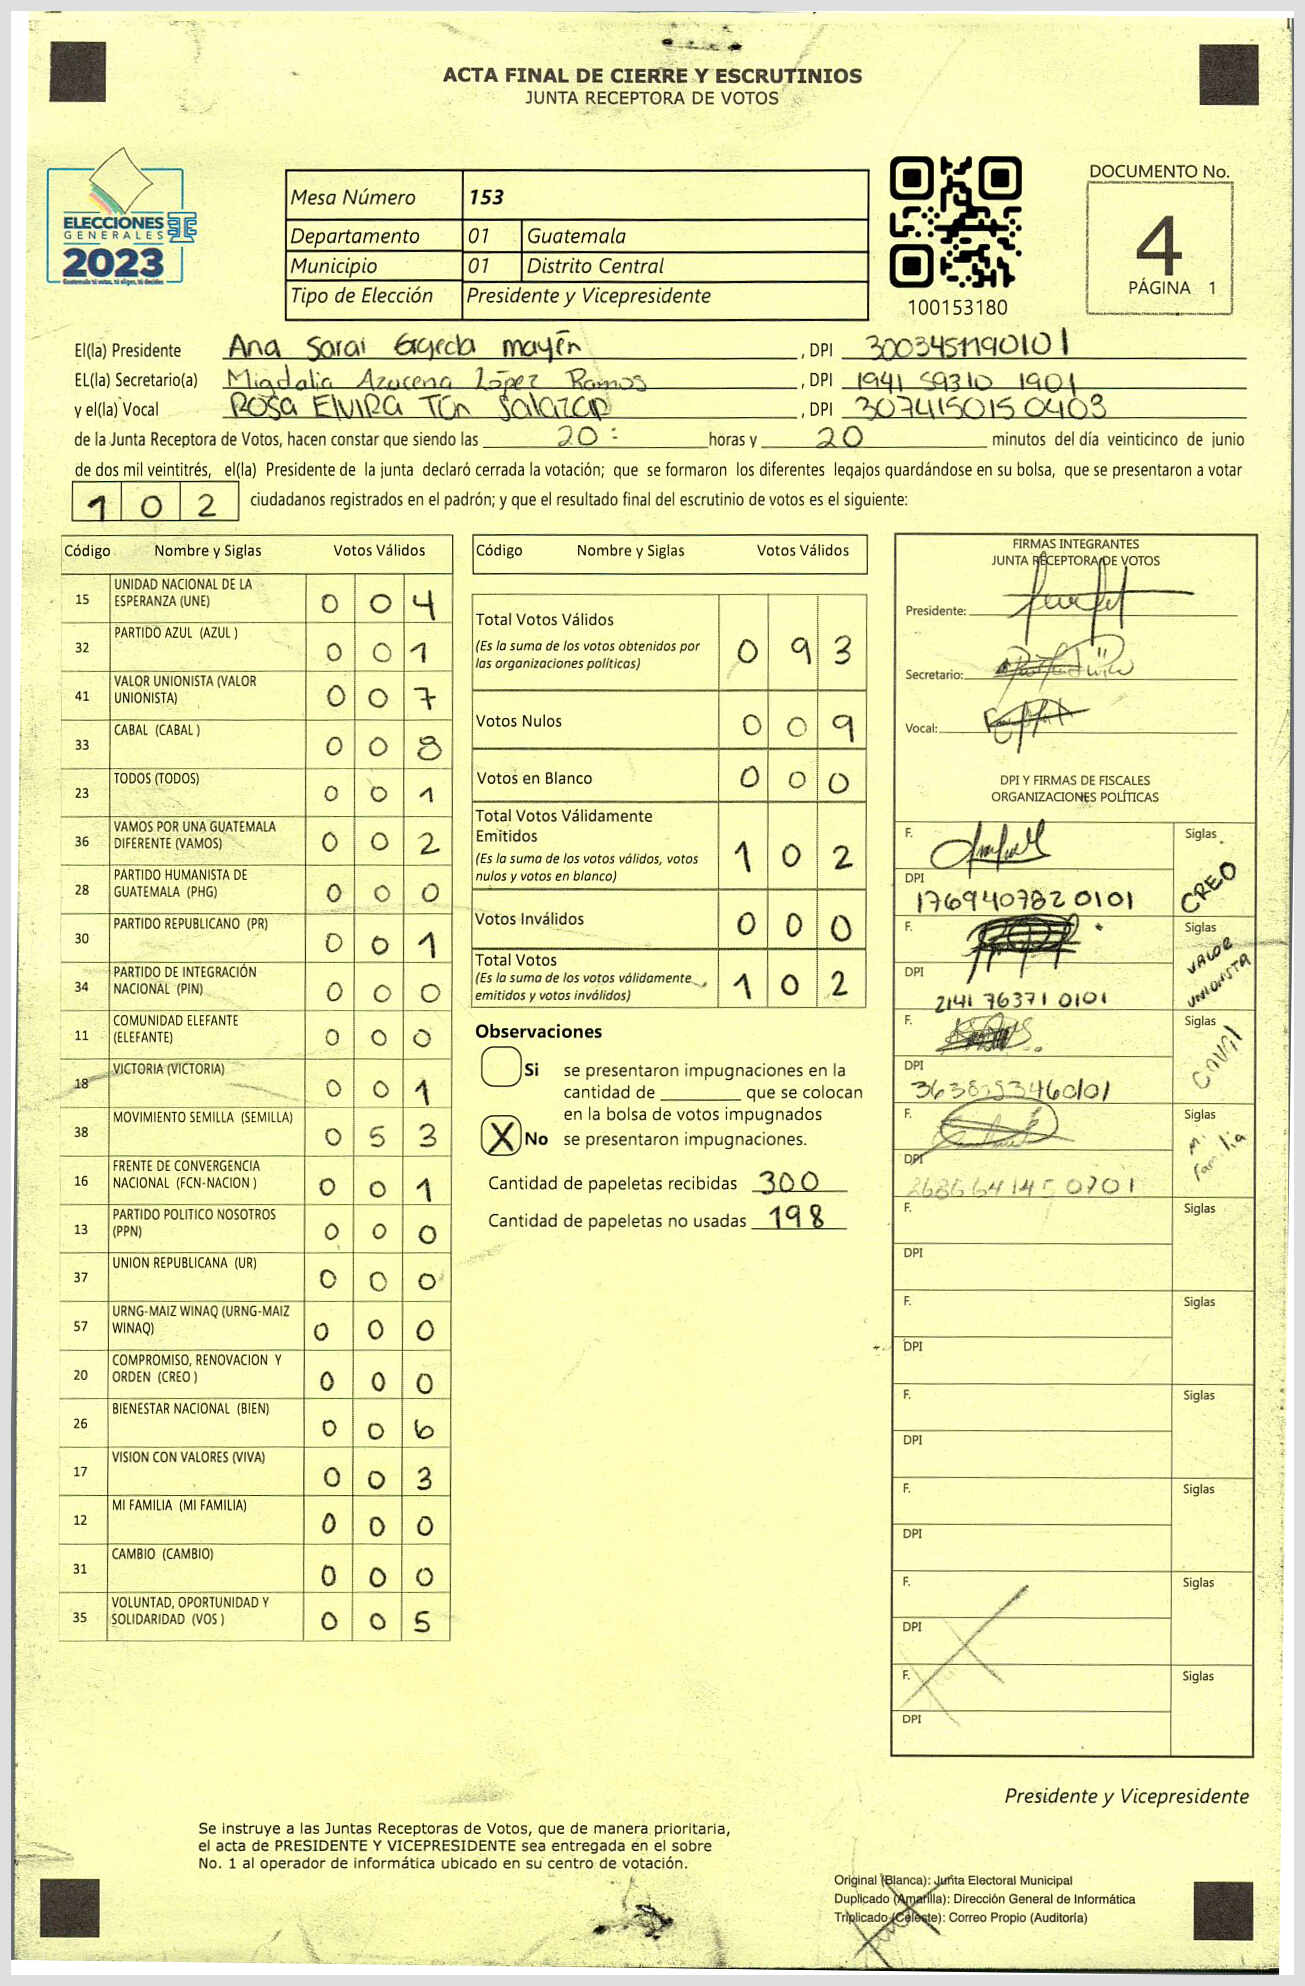 ACTA FINAL DE CIERRE Y ESCRUTINIOS
JUNTA RECEPTORA DE VOTOS
ELECCIONES
GENERALES
2023
Mesa Número 153
Departamento 01 Guatemala
Municipio 01 Distrito Central
Tipo de Elección Presidente y Vicepresidente
100153180
DOCUMENTO No.
4
PÁGINA 1
El(la) Presidente Ana Sarai mayén , DPI 3003451190101
EL(la) Secretario(a) Migdalia Azucena López Ramos , DPI 1941 59310 1901
y el(la) Vocal ROSA ElVIRA Tan Salazar , DPI 3074150150403
de la Junta Receptora de Votos, hacen constar que siendo las 20: horas y 20 minutos del día veinticinco de junio
de dos mil veintitrés, el(la) Presidente de la junta declaró cerrada la votación; que se formaron los diferentes legajos guardándose en su bolsa, que se presentaron a votar
1 0 2 ciudadanos registrados en el padrón; y que el resultado final del escrutinio de votos es el siguiente:
Código Nombre y Siglas Votos Válidos
15 UNIDAD NACIONAL DE LA ESPERANZA (UNE) 0 0 4
32 PARTIDO AZUL (AZUL ) 0 0 1
41 VALOR UNIONISTA (VALOR UNIONISTA) 0 0 7
33 CABAL (CABAL ) 0 0 8
23 TODOS (TODOS) 0 0 1
36 VAMOS POR UNA GUATEMALA DIFERENTE (VAMOS) 0 0 2
28 PARTIDO HUMANISTA DE GUATEMALA (PHG) 0 0 0
30 PARTIDO REPUBLICANO (PR) 0 0 1
34 PARTIDO DE INTEGRACIÓN NACIONAL (PIN) 0 0 0
11 COMUNIDAD ELEFANTE (ELEFANTE) 0 0 0
18 VICTORIA (VICTORIA) 0 0 1
38 MOVIMIENTO SEMILLA (SEMILLA) 0 5 3
16 FRENTE DE CONVERGENCIA NACIONAL (FCN-NACION ) 0 0 1
13 PARTIDO POLITICO NOSOTROS (PPN) 0 0 0
37 UNION REPUBLICANA (UR) 0 0 0
57 URNG-MAIZ WINAQ (URNG-MAIZ WINAQ) 0 0 0
20 COMPROMISO, RENOVACION Y ORDEN (CREO ) 0 0 0
26 BIENESTAR NACIONAL (BIEN) 0 0 6
17 VISION CON VALORES (VIVA) 0 0 3
12 MI FAMILIA (MI FAMILIA) 0 0 0
31 CAMBIO (CAMBIO) 0 0 0
35 VOLUNTAD, OPORTUNIDAD Y SOLIDARIDAD (VOS ) 0 0 5
Código Nombre y Siglas Votos Válidos
Total Votos Válidos 0 9 3
(Es la suma de los votos obtenidos por
las organizaciones políticas)
Votos Nulos 0 0 9
Votos en Blanco 0 0 0
Total Votos Válidamente
Emitidos 1 0 2
(Es la suma de los votos válidos, votos
nulos y votos en blanco)
Votos Inválidos 0 0 0
Total Votos 1 0 2
(Es la suma de los votos válidamente
emitidos y votos inválidos)
Observaciones
Si se presentaron impugnaciones en la
cantidad de ________ que se colocan
en la bolsa de votos impugnados
X No se presentaron impugnaciones.
Cantidad de papeletas recibidas 300
Cantidad de papeletas no usadas 198
FIRMAS INTEGRANTES
JUNTA RECEPTORA DE VOTOS
Presidente:
Secretario:
Vocal:
DPI Y FIRMAS DE FISCALES
ORGANIZACIONES POLÍTICAS
F. Siglas
DPI CREO
1769407820101
F. Siglas
DPI VALOR UNIONISTA
2141 76371 0101
F. Siglas
DPI
F. Siglas
DPI Mi Familia
F. Siglas
DPI
F. Siglas
DPI
F. Siglas
DPI
F. Siglas
DPI
F. Siglas
DPI
F. Siglas
DPI
Presidente y Vicepresidente
Se instruye a las Juntas Receptoras de Votos, que de manera prioritaria,
el acta de PRESIDENTE Y VICEPRESIDENTE sea entregada en el sobre
No. 1 al operador de informática ubicado en su centro de votación.
Original (Blanca): Junta Electoral Municipal
Duplicado (Amarilla): Dirección General de Informática
Triplicado (Celeste): Correo Propio (Auditoría)